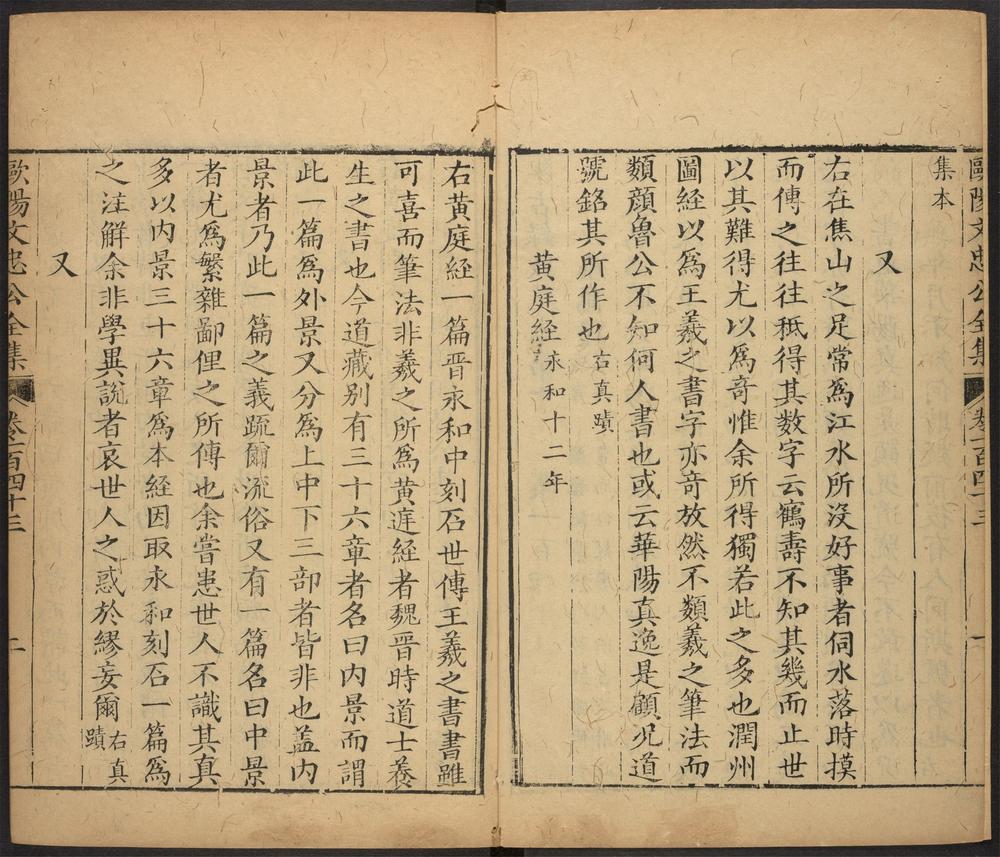 歐陽文忠公全集 卷一百四十三 一
集本
又
右在焦山之足常爲江水所沒好事者伺水落時摸
而傳之往往秪得其数字云鶴壽不知其幾而止世
以其難得尤以爲竒惟余所得獨若此之多也潤州
圖經以爲王羲之書字亦竒放然不類羲之筆法而
類顔魯公不知何人書也或云華陽真逸是顧况道
號銘其所作也右真蹟
黄庭經永和十二年
右黄庭經一篇晋永和中刻石世傳王羲之書書雖
可喜而筆法非羲之所爲黄庭経者魏晋時道士養
生之書也今道藏别有三十六章者名曰内景而謂
此一篇爲外景又分爲上中下三部者皆非也盖内
景者乃此一篇之義疏爾流俗又有一篇名曰中景
者尤爲繁雜鄙俚之所傳也余嘗患世人不識其真
多以内景三十六章爲本経因取永和刻石一篇爲
之注解余非學異說者哀世人之惑於繆妄爾右真蹟
又
歐陽文忠公全集 卷一百四十三 二